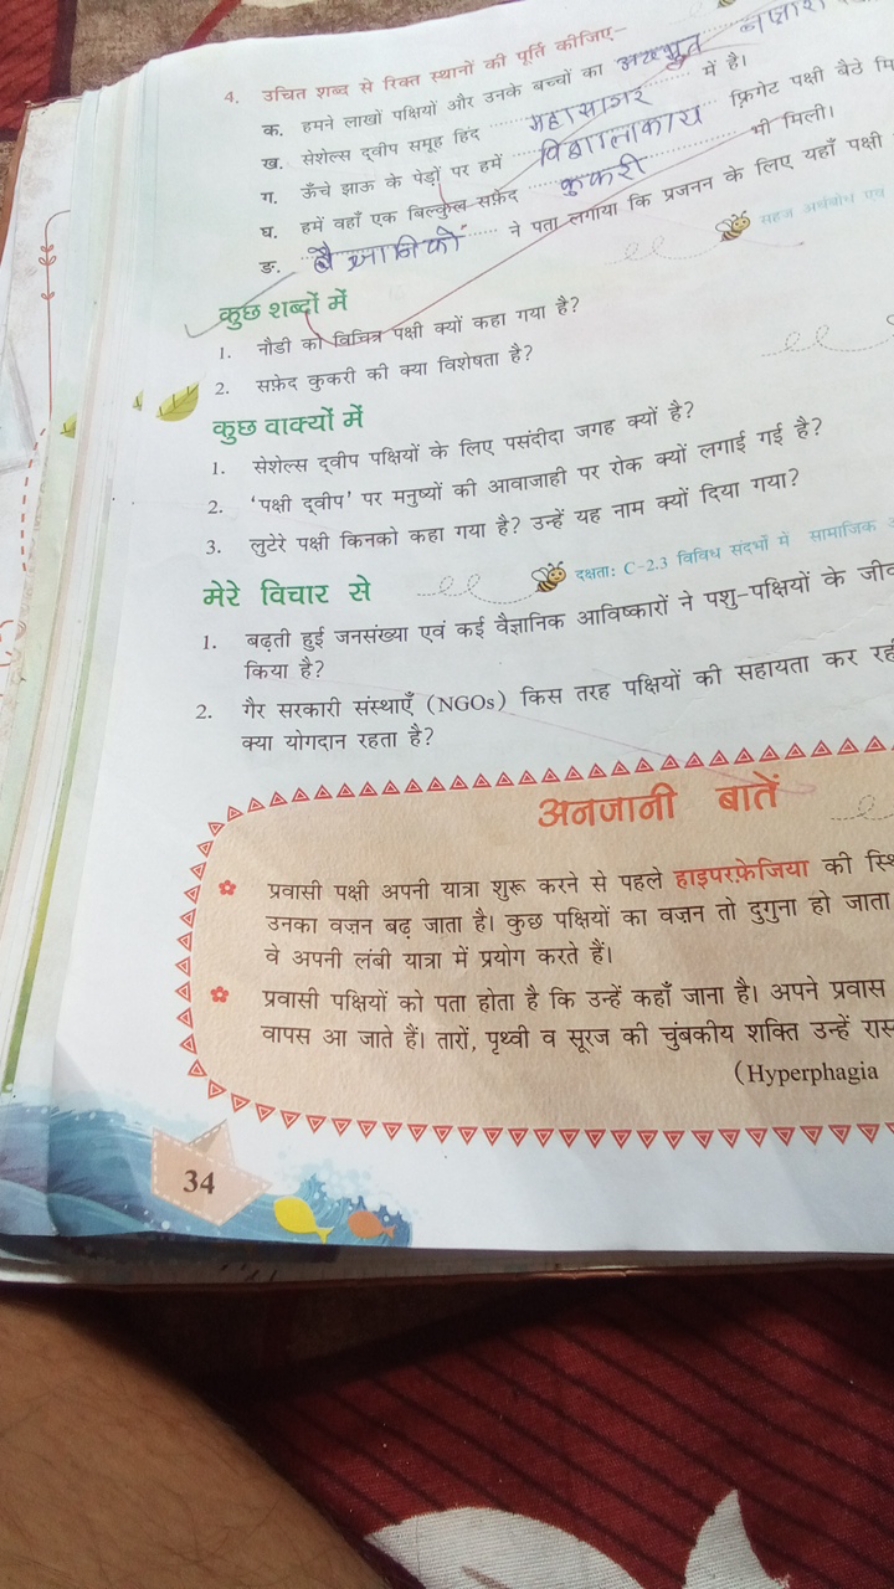 4. उचित शब्द से रिक्त स्थानों की पूर्ति कीजिए-
क. हमने लाखों पक्षियों और उनके बच्चों का अदभुत नज़ारा
ख. सेशेल्स द्वीप समूह हिंद महासागर में है।
ग. ऊँचे झाऊ के पेड़ों पर हमें विशालाकाय फ्रिगेट पक्षी बैठे मि
घ. हमें वहाँ एक बिल्कुल सफ़ेद कुकरी भी मिली।
ङ. वैज्ञानिकों ने पता लगाया कि प्रजनन के लिए यहाँ पक्षी
सहज अर्थबोध एवं
कुछ शब्दों में
1. नौडी को विचित्र पक्षी क्यों कहा गया है?
2. सफ़ेद कुकरी की क्या विशेषता है?
कुछ वाक्यों में
1. सेशेल्स द्वीप पक्षियों के लिए पसंदीदा जगह क्यों है?
2. 'पक्षी द्वीप' पर मनुष्यों की आवाजाही पर रोक क्यों लगाई गई है?
3. लुटेरे पक्षी किनको कहा गया है? उन्हें यह नाम क्यों दिया गया?
दक्षता: C-2.3 विविध संदर्भों में सामाजिक
मेरे विचार से
1. बढ़ती हुई जनसंख्या एवं कई वैज्ञानिक आविष्कारों ने पशु-पक्षियों के जीव
किया है?
2. गैर सरकारी संस्थाएँ (NGOs) किस तरह पक्षियों की सहायता कर रही
क्या योगदान रहता है?
अनजानी बातें
प्रवासी पक्षी अपनी यात्रा शुरू करने से पहले हाइपरफ़ेजिया की स्थि
उनका वज़न बढ़ जाता है। कुछ पक्षियों का वज़न तो दुगुना हो जाता
वे अपनी लंबी यात्रा में प्रयोग करते हैं।
प्रवासी पक्षियों को पता होता है कि उन्हें कहाँ जाना है। अपने प्रवास
वापस आ जाते हैं। तारों, पृथ्वी व सूरज की चुंबकीय शक्ति उन्हें रास्
(Hyperphagia
34